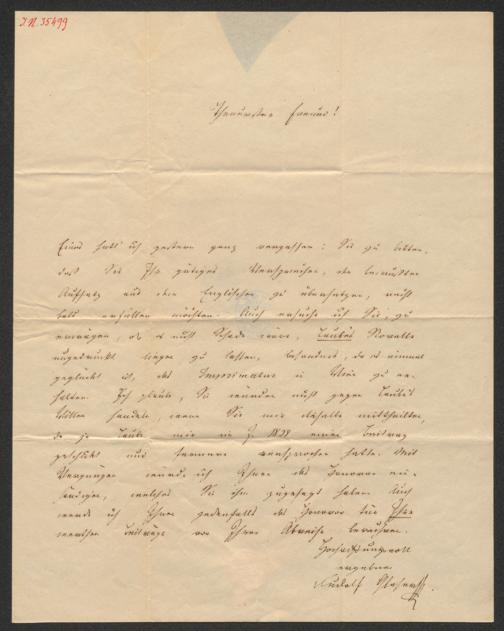 J.N. 35499
Theuerster Freund!
Eines hab' ich gestern ganz vergessen: Sie zu bitten,
daß Sie Ihr gütiges Versprechen, den bewußten
Aufsatz aus dem Englischen zu übersetzen, recht
bald erfüllen möchten. Auch ersuche ich Sie, zu
erwägen, ob es nicht Schade wäre, Laube's Novelle
ungedruckt liegen zu lassen, besonders, da es einmal
geglückt ist, das Imprimatur in Wien zu er-
halten. Ich glaube, Sie würden nicht gegen Laube's
Willen handeln, wenn Sie mir dieselbe mittheilten,
da ja Laube mir im J. 1838 einen Beitrag
geschickt und fernere versprochen hatte. Mit
Vergnügen würde ich Ihnen das Honorar ein-
händigen, welches Sie ihm zugesagt haben. Auch
werde ich Ihnen jedenfalls das Honorar für Ihre
werthen Beiträge vor Ihrer Abreise berichten.
Hochachtungsvoll
ergebener
Rudolf Glaser